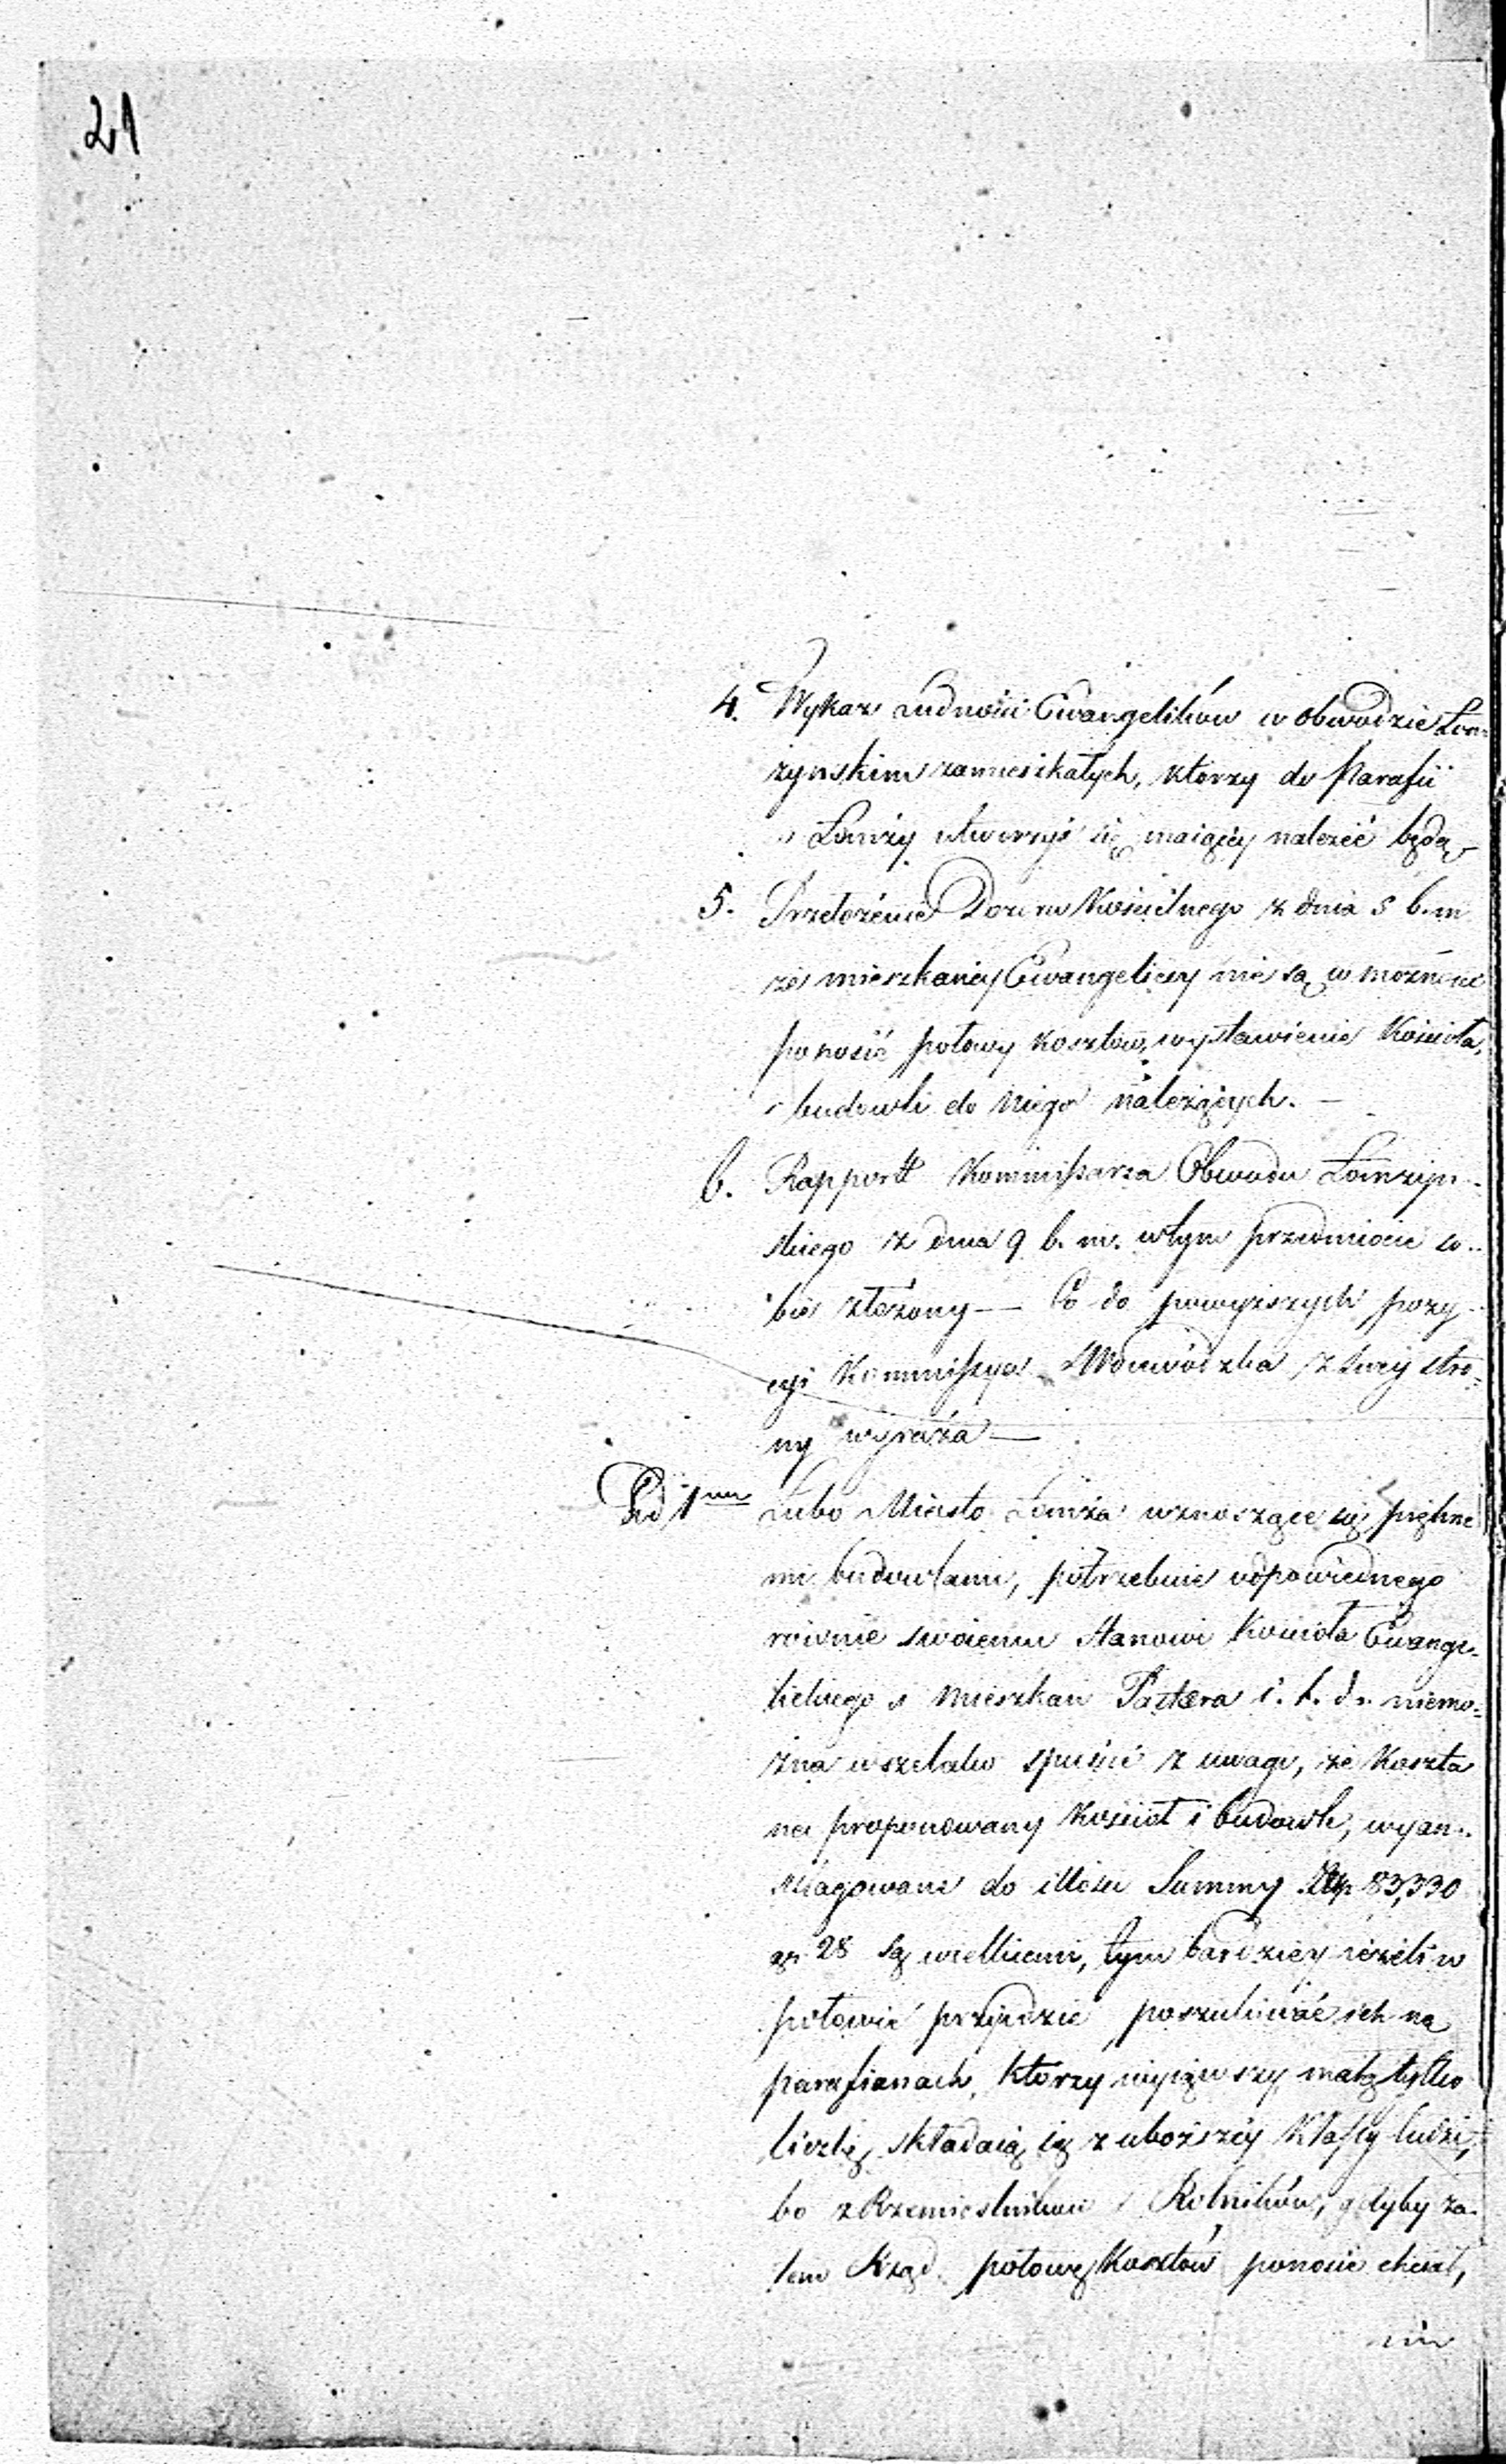 21
4. Wykaz Ludności Ewangelików w obwodzie Łom-
żynskim zamieszkałych, ktorzy do Parafii
w Łomży utworzyć się maiącey należéć będą
5. Przełożenie Dozoru Kościelnego z dnia 5 b. m
że mieszkańcy Ewangeliccy nie są w możności
ponosić połowy kosztów, wystawienia Kościoła,
i budowli do niego należących. —
6. Rapportt Kommissarza Obwodu Łomżyn-
skiego z dnia 9 b. m. w tym przedmiocie so-
bie złożony — Co do powyższych pozy-
cyi Kommissya Woiewódzka z swey stro-
ny wyraża —
Ad 1mum Lubo Miasto Łomża wznoszące się piękne
mi budowlami, potrzebuie odpowiednego
równie swoiemu Stanowi Kościoła Ewange-
lickiego i Mieszkań Pastora i. t. d. niemo-
żna wszelako spuścić z uwagi, że Koszta
na proponowany Kościoł i budowle, wyan-
szlagowane do illości Summy Złp 83,330
gr 28 są wielkiemi, tym bardziey ieżeli w
połowie przyidzie poszukiwać ich na
parafianach, ktorzy wyiąwszy małą tylko
liczbę, składaią się z uboższéy Klassy ludzi,
bo z Rzemieslników i Rolników, gdyby za-
tem Rząd połowę Kosztów ponosić chciał,